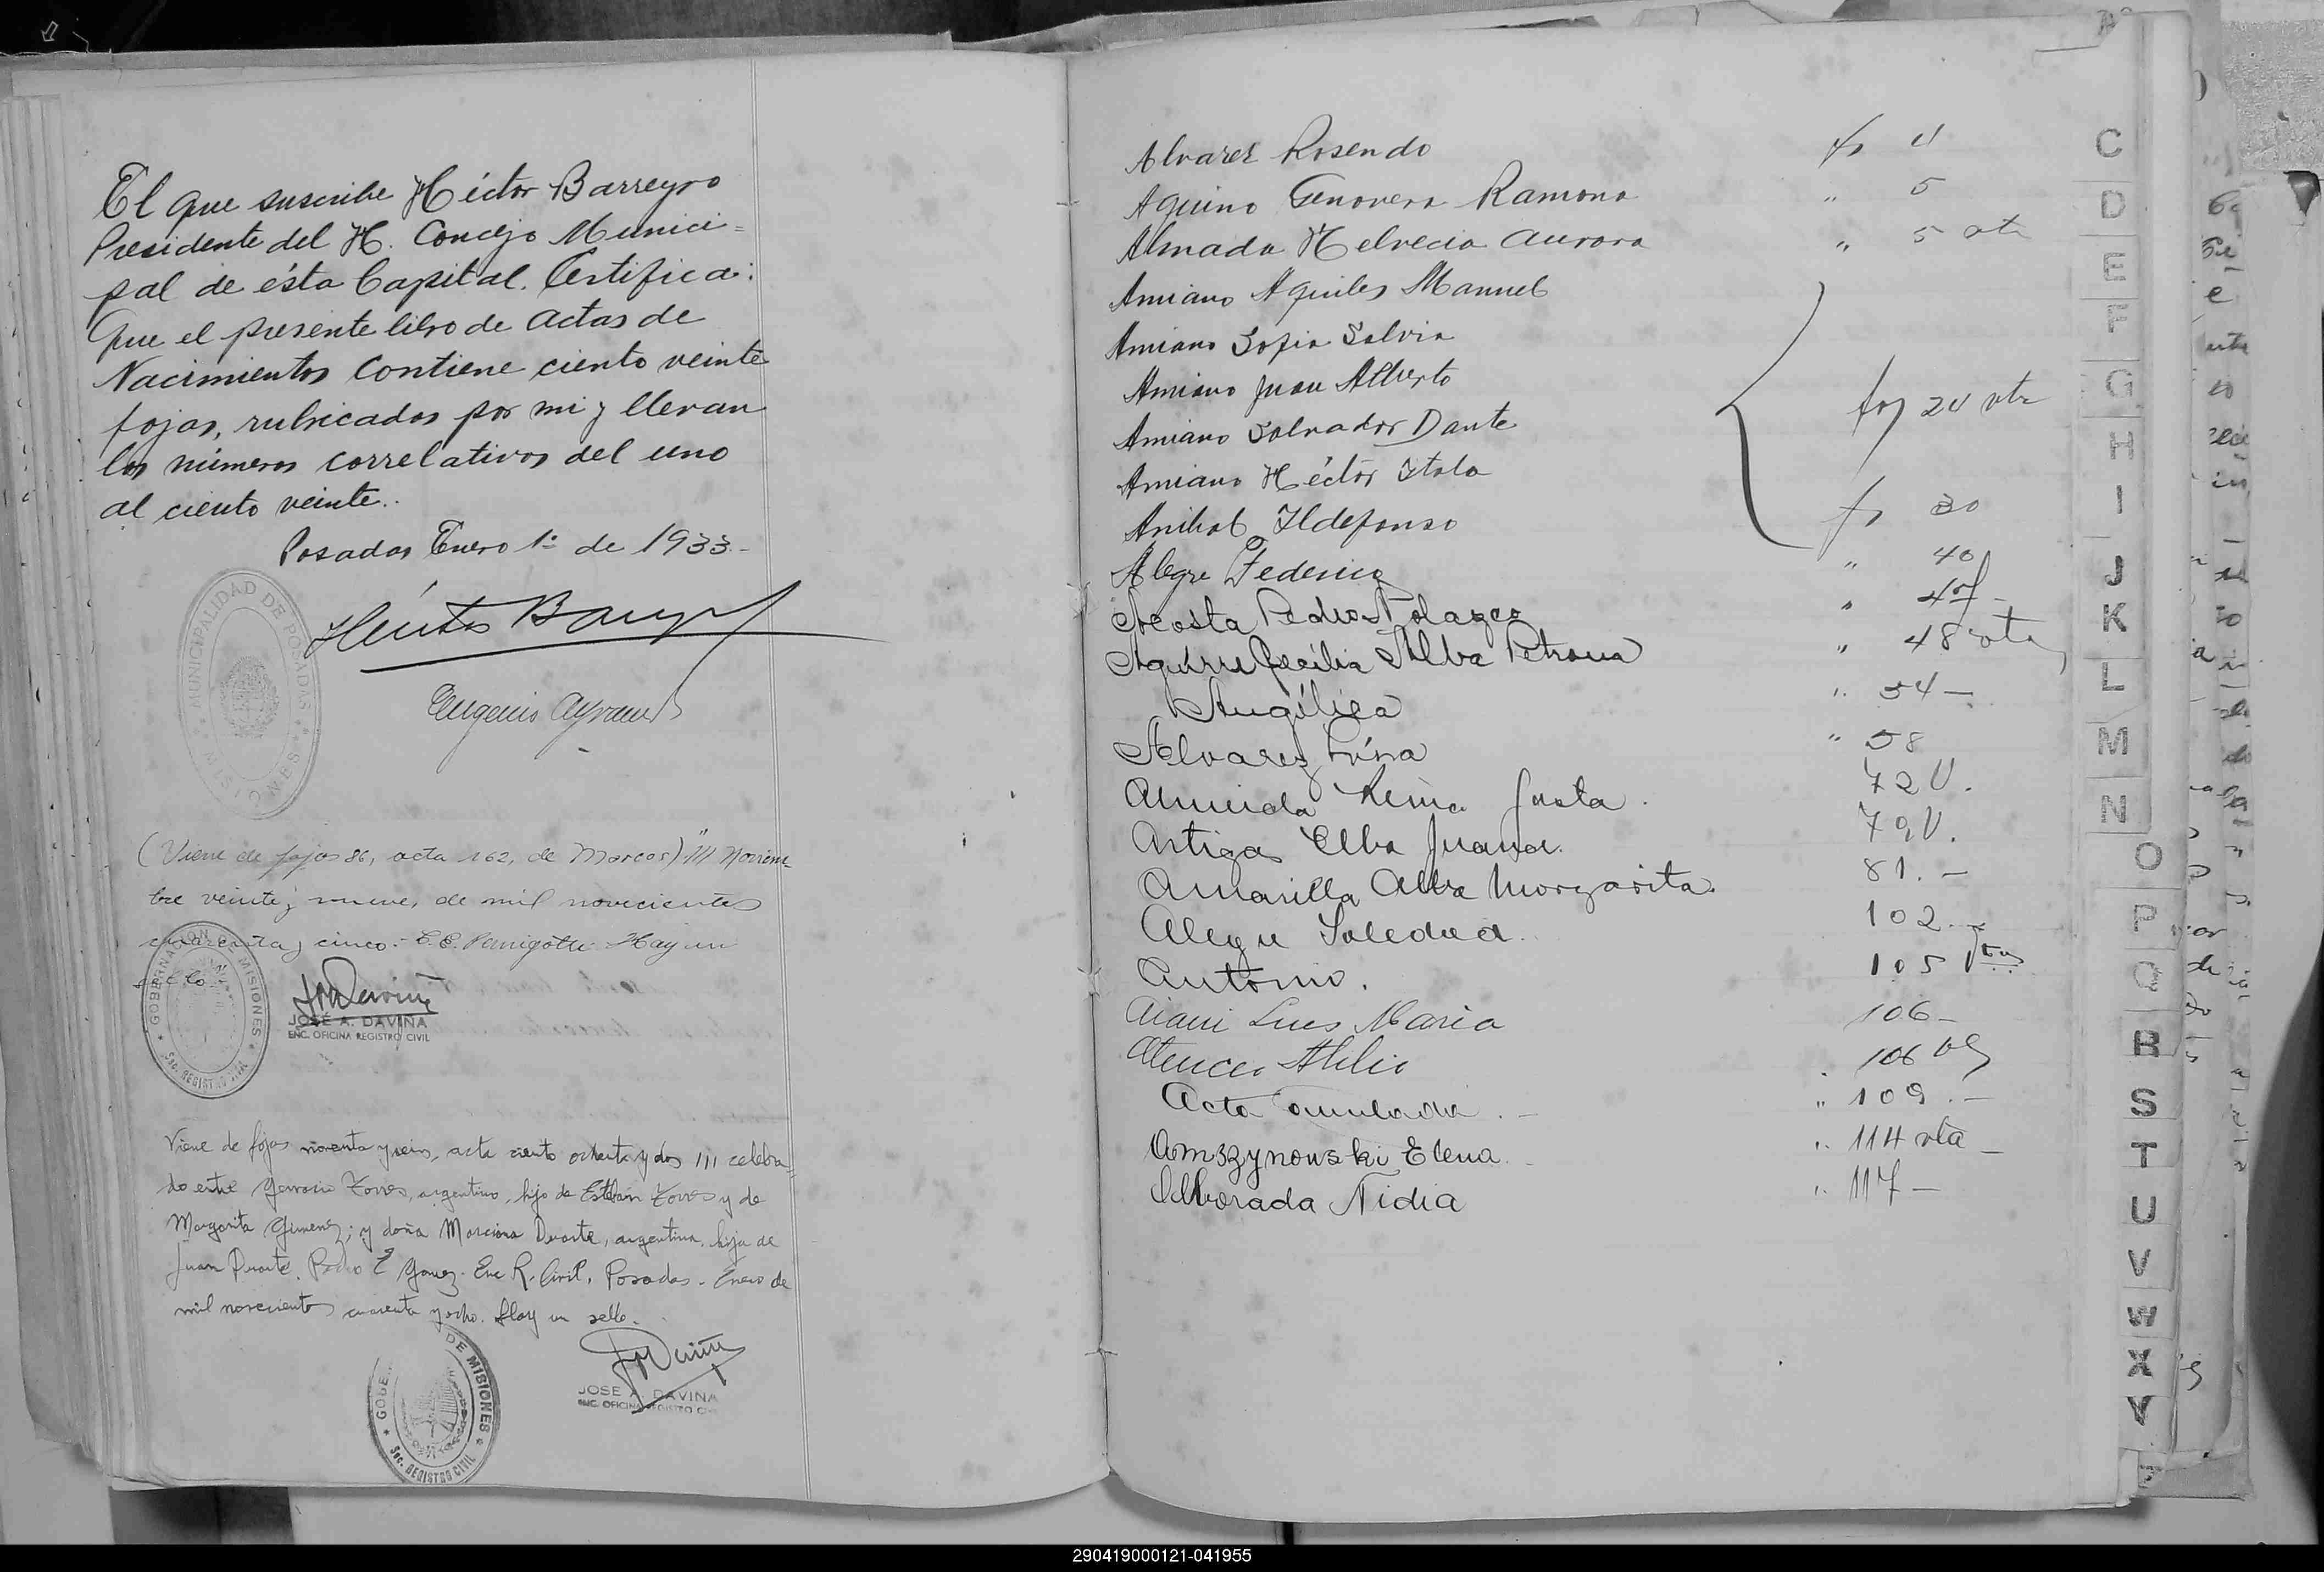 El que suscribe Héctor Barreyro
Presidente del H. Concejo Munici=
pal de ésta Capital. Certifica:
Que el presente libro de actas de
Nacimientos contiene ciento veinte
fojas, rubricados por mi y llevan
los números correlativos del uno
al ciento veinte..
Posadas Enero 1º de 1933.-
MUNICIPALIDAD DE POSADAS
MISIONES
(Viene de fojas 86, acta 162, de Marcos) "III Noviem-
bre veinte y nueve, de mil novecientos
cuarenta y cinco.- Hay un
sello
GOBERNACION DE MISIONES
Sec. REGISTRO CIVIL
JOSÉ A. DAVIÑA
ENC. OFICINA REGISTRO CIVIL
Viene de fojas noventa y seis, acta ciento ochenta y dos III celebra-
do entre Torres, argentino, hijo de Esteban Torres y de
Margarita Gimenez; y doña Marciana Duarte, argentina, hija de
Juan Duarte. Pedro E Enc R. Civil, Posadas - Enero de
mil novecientos cuarenta y ocho. Hay un sello.
DE MISIONES
Sec. REGISTRO CIVIL
JOSE A. DAVIÑA
ENC. OFICINA REGISTRO CIVIL
Alvarez Rosendo fs 4
Aquino Genovera Ramona " 5
Almada Helvecia Aurora " 5 vta
Amiano Aquiles Manuel
Amiano Sofia Salvia
Amiano Juan Alberto
Amiano Salvador Dante fs 24 vta
Amiano Héctor Italo
Anibal Ildefonso fs 30
Alegre Federico " 40
Acosta Pedro Nolazco "
Aguirre Cecilia Alba Petrona " 48 vta
Angélica " 54 -
Alvarez " 58
Almirola Reina Justa. 72 V.
Artigas Elba Juana. 79 V.
Amarilla Alba Margarita. 81. -
Alegre Soledad. 102. -
Antonio. 105 Vta
Luis Maria 106 -
Atilio 106
Acta anulada. - " 109. -
Amszynowski Elena. " 114 vta -
Alborada Nidia " 117 -
C
D
E
F
G
H
I
J
K
L
M
N
O
P
Q
R
S
T
U
V
W
X
Y
290419000121-041955